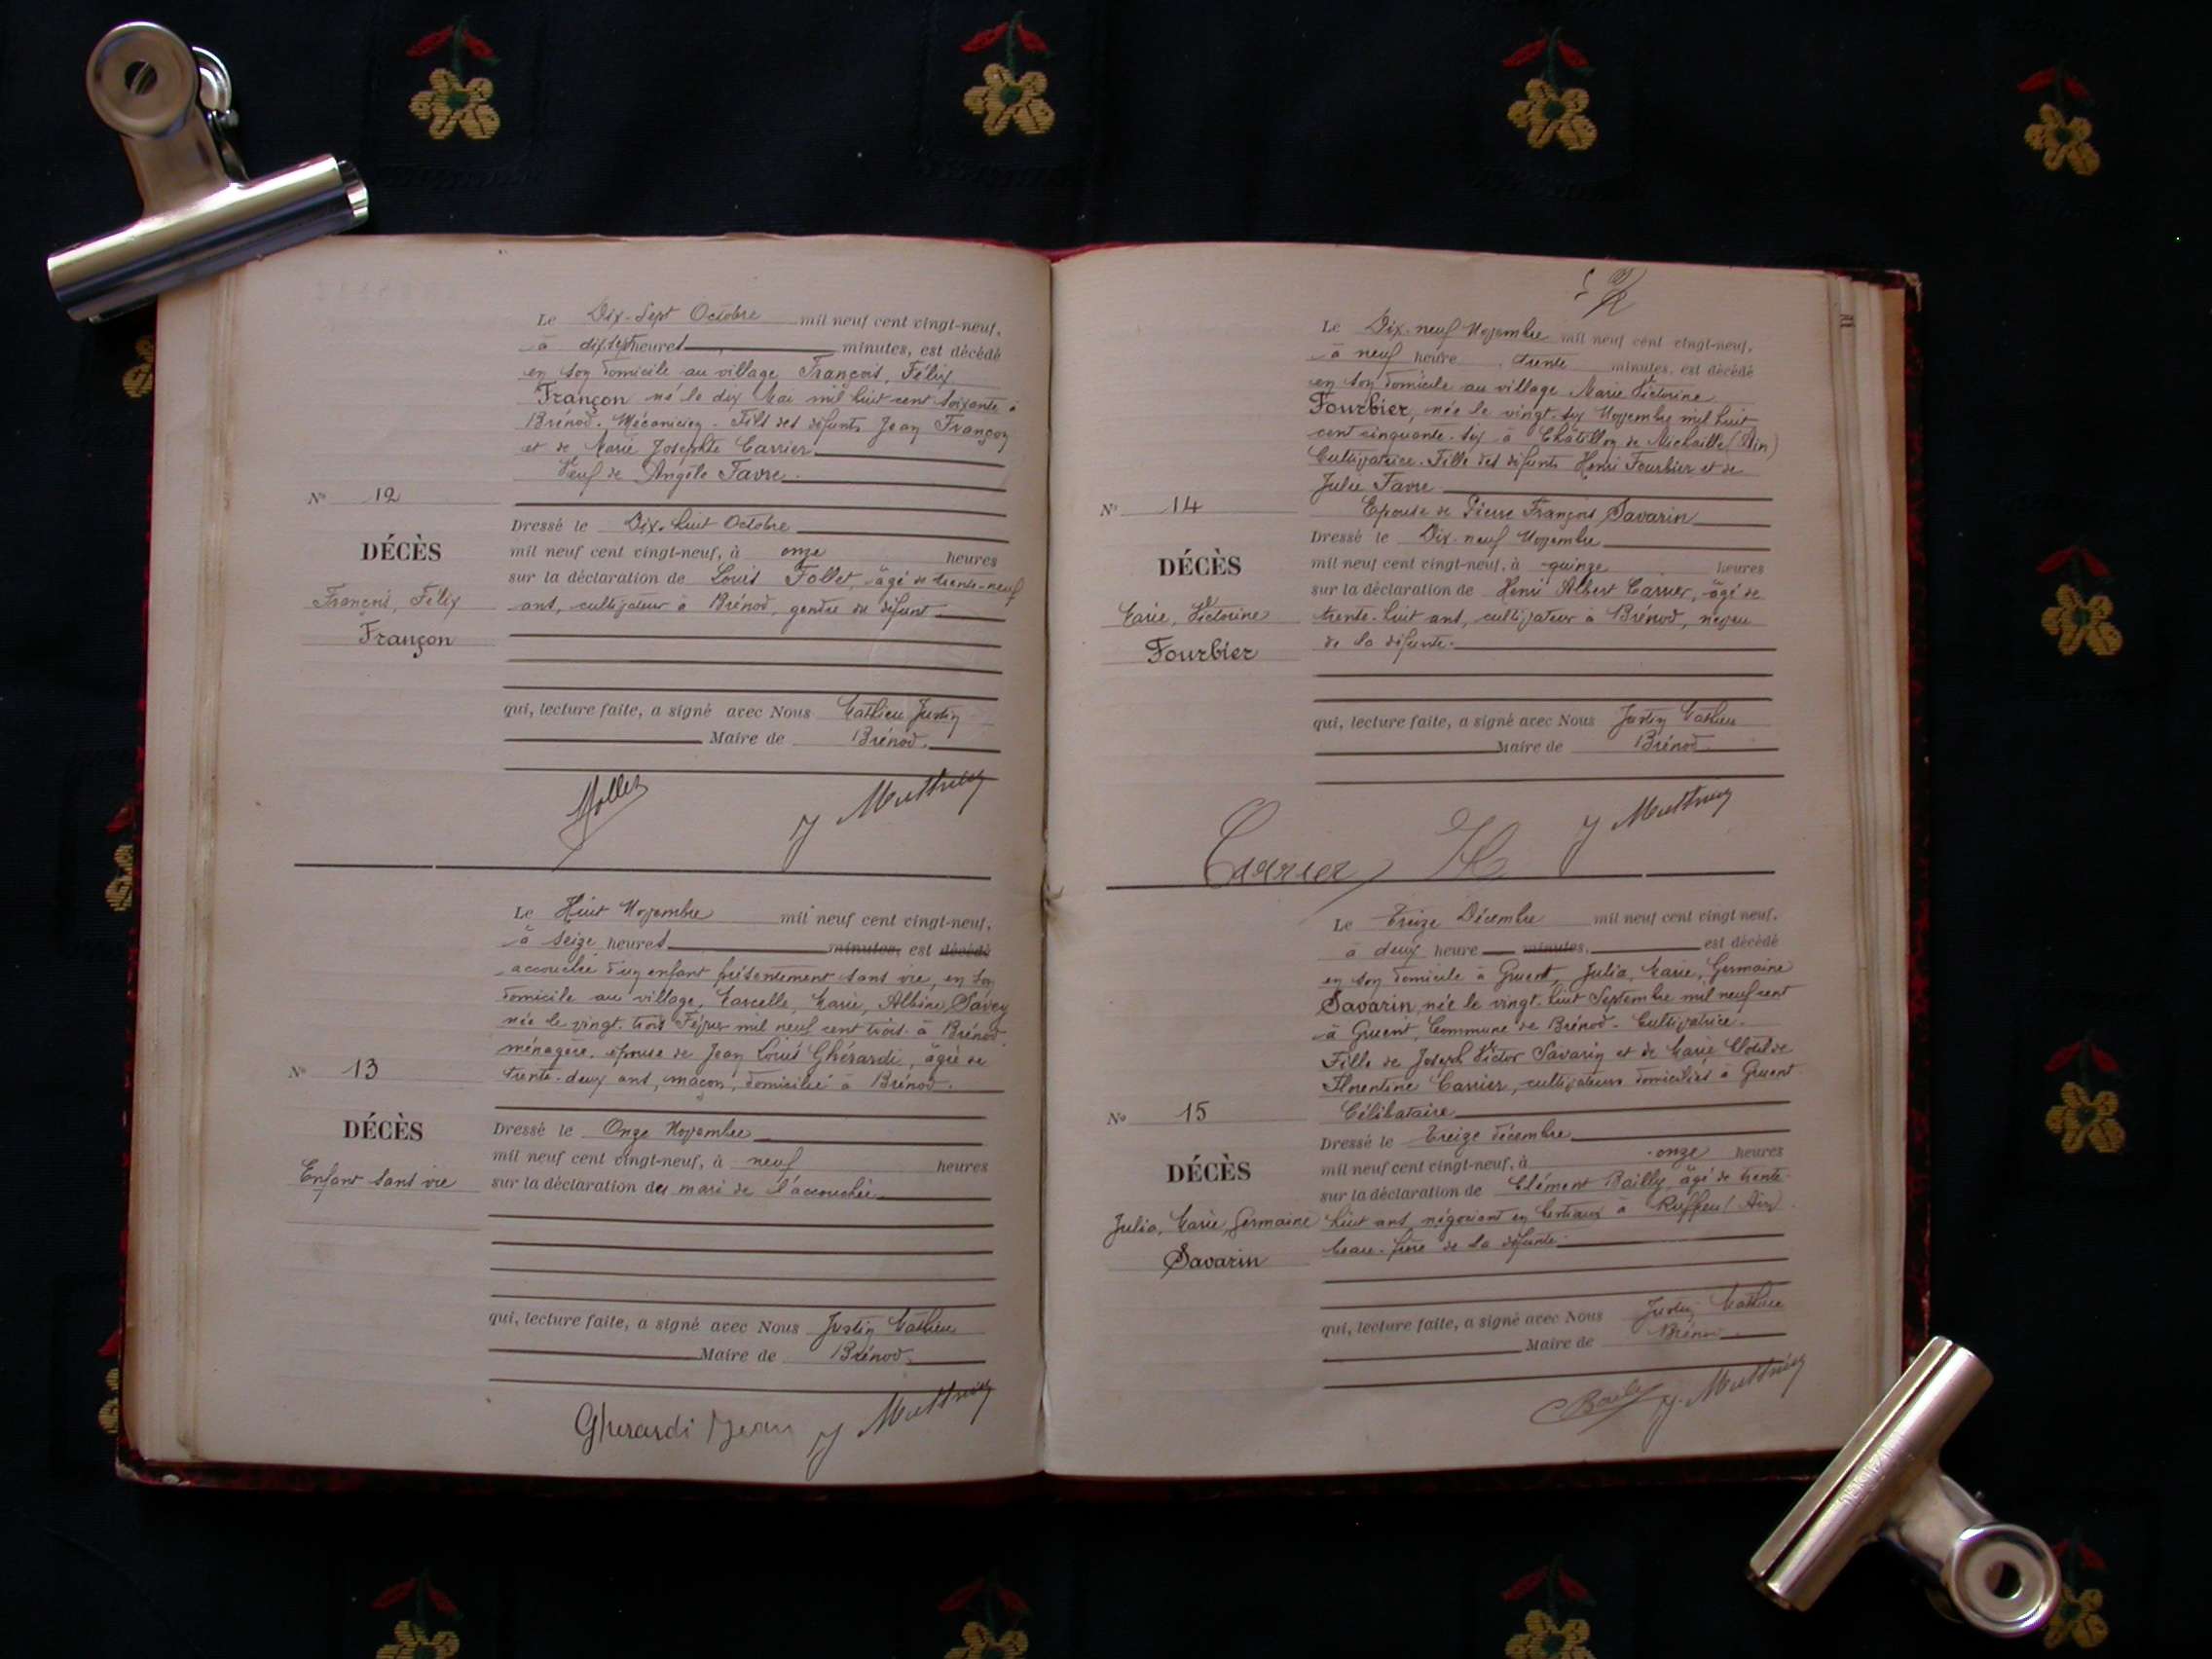 Le Dix-Sept Octobre mil neuf cent vingt-neuf,
à dix sept heures minutes, est décédé
en son domicile au village François, Félix
Françon né le dix Mai mil huit cent soixante à
Brénod. Mécanicien. Fils des défunts Jean Françon
et de Marie Josephte Carrier
Veuf de Angèle Favre.
N° 12
Dressé le Dix-huit Octobre
DÉCÈS
mil neuf cent vingt-neuf, à onze heures
sur la déclaration de Louis Follet, âgé de trente-neuf
François, Félix
ans, cultivateur à Brénod, gendre du défunt
Françon
qui, lecture faite, a signé avec Nous Mathieu Justin
Maire de Brénod.
Follet
J Mathieu
Le Huit Novembre mil neuf cent vingt-neuf,
à seize heures minutes, est décédé
accouchée d'un enfant présentement sans vie, en son
domicile au village, Marcelle, Marie, Albine, Savey
née le vingt-trois Février mil neuf cent trois à Brénod
ménagère. épouse de Jean Louis Ghérardi, âgé de
N° 13
trente-deux ans, maçon, domicilié à Brénod.
DÉCÈS
Dressé le Onze Novembre
mil neuf cent vingt-neuf, à neuf heures
Enfant sans vie
sur la déclaration du mari de l'accouchée
qui, lecture faite, a signé avec Nous Justin Mathieu
Maire de Brénod.
Gherardi Jean
J Mathieu
Le Dix-neuf Novembre mil neuf cent vingt-neuf,
à neuf heure, trente minutes, est décédé
en son domicile au village Marie Victorine
Fourbier, née le vingt-six Novembre mil huit
cent cinquante-six à Châtillon de Michaille (Ain)
Cultivatrice. Fille des défunts Henri Fourbier et de
Julie Favre.
N° 14
Epouse de Pierre François Savarin
Dressé le Dix-neuf Novembre
DÉCÈS
mil neuf cent vingt-neuf, à quinze heures
sur la déclaration de Henri Albert Carrier, âgé de
Marie, Victorine
trente-huit ans, cultivateur à Brénod, neveu
Fourbier
de la défunte.
qui, lecture faite, a signé avec Nous Justin Mathieu
Maire de Brénod.
Carrier H
J Mathieu
Le Treize Décembre mil neuf cent vingt-neuf,
à deux heure minutes, est décédé
en son domicile à Gruent, Julia, Marie, Germaine
Savarin, née le vingt-huit Septembre mil neuf cent
à Gruent, Commune de Brénod. Cultivatrice.
Fille de Joseph Victor Savarin et de Marie Clotilde
Florentine Carrier, cultivateurs domiciliés à Gruent
N° 15
Célibataire
Dressé le Treize décembre
DÉCÈS
mil neuf cent vingt-neuf, à onze heures
sur la déclaration de Clément Bailly, âgé de trente-
Julia, Marie, Germaine
huit ans, négociant en bestiaux à Ruffieu (Ain)
Savarin
beau-frère de la défunte
qui, lecture faite, a signé avec Nous Justin Mathieu
Maire de Brénod
Bailly
J. Mathieu